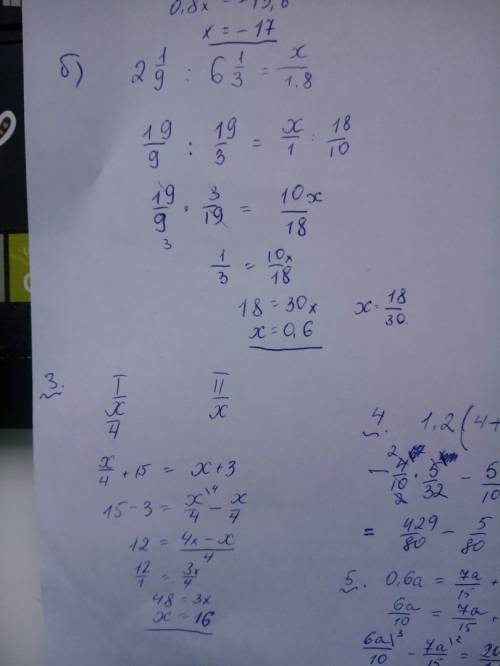 0,8x = -13,6
x = -17
б) 2 1/9 : 6 1/3 = x/1.8
19/9 : 19/3 = x/1 : 18/10
19/9 · 3/19 = 10x/18
3
1/3 = 10x/18
18 = 30x x = 18/30
x = 0,6
3.
I II
x/4 x
x/4 + 15 = x + 3
15 - 3 = x\4/4 - x/4
12 = 4x - x/4
12/1 = 3x/4
48 = 3x
x = 16
4. 1.2 (4+
- 4/10 · 5/32 - 5/10
= 429/80 - 5/80
5. 0,6a = 7a/15 +
6a/10 = 7a/15 +
6a\3/10 - 7a\2/15 =